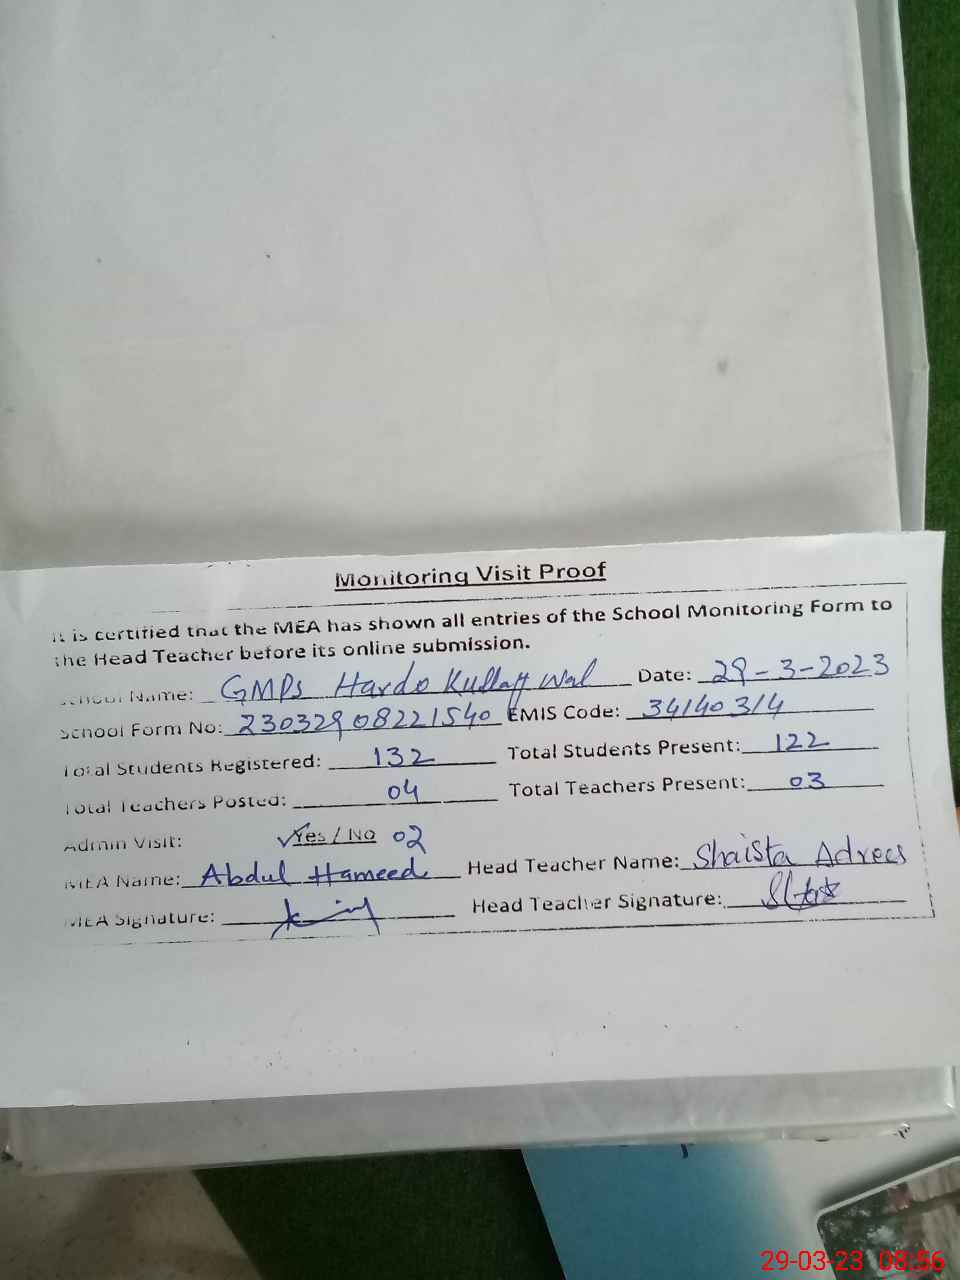 Monitoring Visit Proof
It is certified that the MEA has shown all entries of the School Monitoring Form to
the Head Teacher before its online submission.
School Name: GMPS Hardo Date: 29-3-2023
School Form No: 23032908221540 EMIS Code: 34140314
Total Students Registered: 132 Total Students Present: 122
Total Teachers Posted: 04 Total Teachers Present: 03
Admin Visit: ✓Yes / No 02
MEA Name: Abdul Hameed Head Teacher Name: Shaista Adrees
MEA Signature: Head Teacher Signature:
29-03-23 08:56